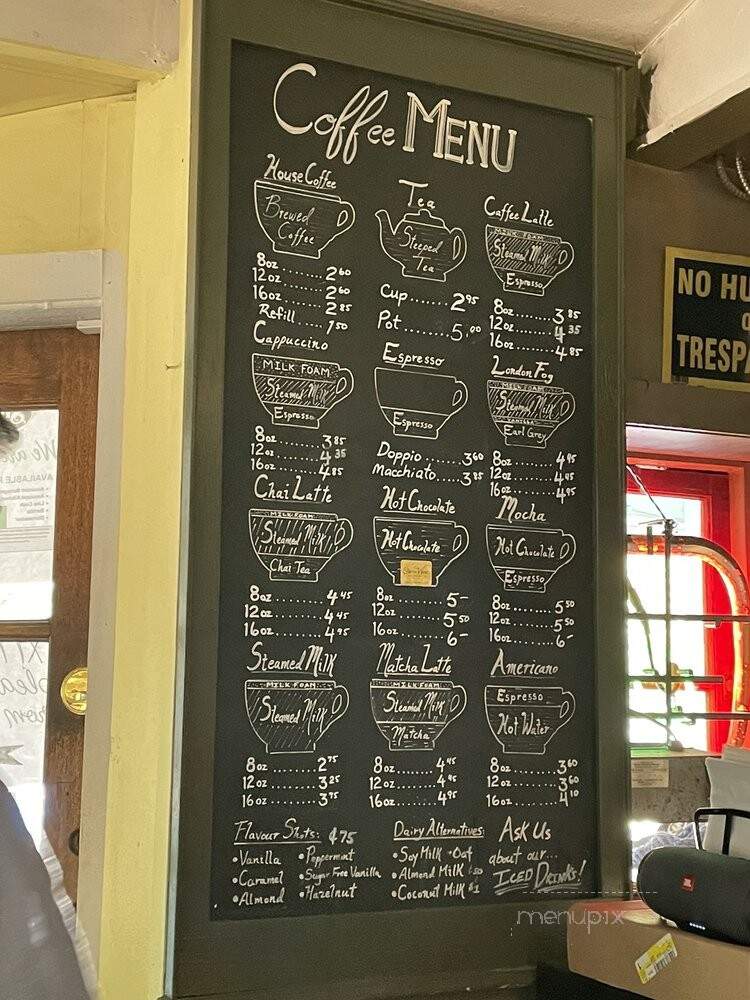 Coffee MENU
House Coffee
Brewed
Coffee
8oz ....... 2 60
12oz ....... 2 60
16oz ....... 2 85
Refill ..... 1 50
Tea
Steeped
Tea
Cup ....... 2 95
Pot ....... 5 00
Caffee Latte
MILK FOAM
Steamed Milk
Espresso
8oz ....... 3 85
12oz ....... 4 35
16oz ....... 4 85
Cappuccino
MILK FOAM
Steamed Milk
Espresso
8oz ....... 3 85
12oz ....... 4 35
16oz ....... 4 85
Espresso
Espresso
Doppio ...... 3 60
Macchiato .... 3 85
London Fog
MILK FOAM
Steamed Milk
VANILLA
Earl Grey
8oz ....... 4 95
12oz ....... 4 95
16oz ....... 4 95
Chai Latte
MILK FOAM
Steamed Milk
Chai Tea
8oz ....... 4 45
12oz ....... 4 45
16oz ....... 4 95
Hot Chocolate
Hot Chocolate
8oz ....... 5 –
12oz ....... 5 50
16oz ....... 6 –
Mocha
Hot Chocolate
Espresso
8oz ....... 5 50
12oz ....... 5 50
16oz ....... 6 –
Steamed Milk
MILK FOAM
Steamed Milk
8oz ....... 2 75
12oz ....... 3 25
16oz ....... 3 75
Matcha Latte
MILK FOAM
Steamed Milk
Matcha
8oz ....... 4 45
12oz ....... 4 95
16oz ....... 4 95
Americano
Espresso
Hot Water
8oz ....... 3 60
12oz ....... 3 60
16oz ....... 4 10
Flavour Shots: $75
• Vanilla • Peppermint
• Caramel • Sugar Free Vanilla
• Almond • Hazelnut
Dairy Alternatives:
• Soy Milk • Oat
• Almond Milk $.50
• Coconut Milk $1
ASK US
about our...
ICED DRINKS!
NO HU
TRESPA
We are
JBL
menupix